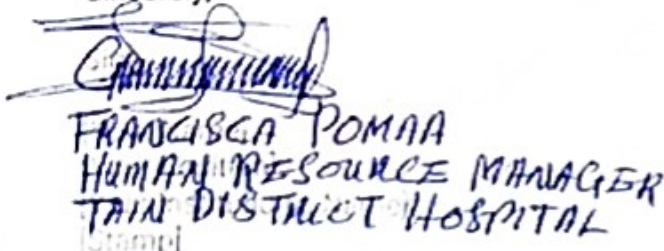 FRANCISCA POMAA
HUMAN RESOURCE MANAGER
TAIN DISTRICT HOSPITAL
[Stamp]